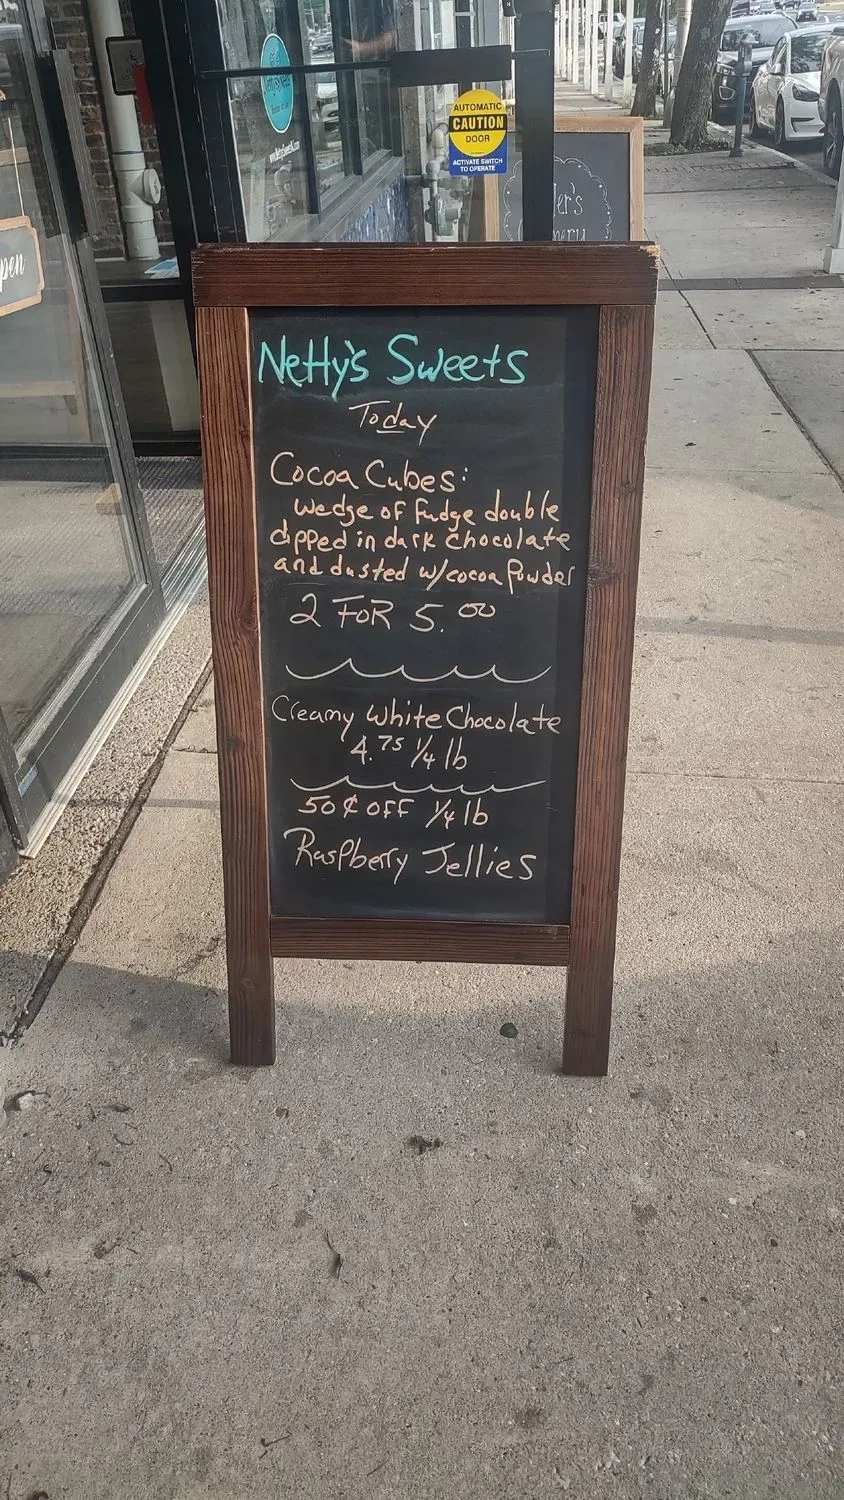 Netty's Sweets
Today
Cocoa Cubes:
wedge of fudge double
dipped in dark chocolate
and dusted w/cocoa powder
2 FOR 5.00
Creamy White Chocolate
4.75 1/4 lb
50¢ OFF 1/4 lb
Raspberry Jellies
AUTOMATIC
CAUTION
DOOR
ACTIVATE SWITCH
TO OPERATE
pen
er's
nery